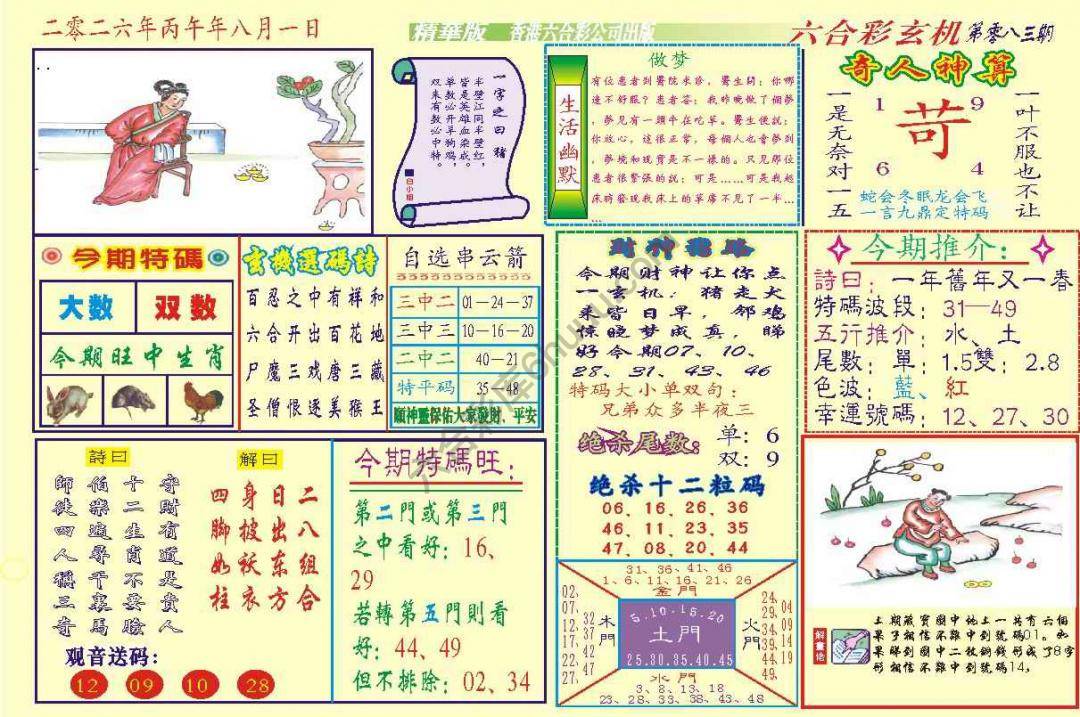 二零二六年丙午年八月一日
精華版 香港六合彩公司出版
六合彩玄机 第零八三期
一字之曰：猪
半壁江同半壁红，
皆是英雄血染成。
单数必开羊狗鸡，
双来有数必中特。
白小姐
做梦
生活幽默
有位患者到醫院来诊，醫生問：你哪
達不舒服？患者答：我昨晚做了個夢
，夢见有一頭牛在吃草。醫生便說：
你放心，這很正常，每個人也會夢到
，夢境和现實是不一樣的。只见那位
患者很緊张的説：可是……可是我起
床時發现我床上的草席不见了一半…
…
奇人神算
一是无奈对一五
1 9
苛
6 4
一叶不服也不让
蛇会冬眠龙会飞
一言九鼎定特码
今期特碼
大数 双数
今期旺中生肖
玄機選碼詩
百忍之中有祥和
六合开出百花地
尸魔三戏唐三藏
圣僧恨逐美猴王
自选串云箭
三中二 01－24－37
三中三 10－16－20
二中二 40－21
特平码 35－48
願神靈保佑大家發財、平安
财神指路
今期财神让你点
一玄机：猪走犬
来皆日早，邻鸡
惊晚梦成真，睇
好今期07、10、
28、31、43、46
特码大小单双句：
兄弟众多半夜三
绝杀尾数： 单：6
双：9
绝杀十二粒码
06、16、26、36
46、11、23、35
47、08、20、44
今期推介：
詩曰： 一年舊年又一春
特碼波段：31—49
五行推介：水、土
尾數：單：1.5雙：2.8
色波：藍、紅
幸運號碼：12、27、30
詩曰
守財有道是貴人
十二生肖不要臉
伯樂遍尋千裏馬
師徒四人稱三奇
解曰
二八组合
日出东方
身披袄衣
四脚如柱
观音送码：
12 09 10 28
今期特碼旺：
第二門或第三門
之中看好：16、
29
若轉第五門則看
好：44、49
但不排除：02、34
31、36、41、46
1、6、11、16、21、26
金門
02、07、12、17、22、27、
32、37、42、47
木門
5.10.15.20
土門
25.30.35.40.45
火門
24、29、34、39、44、49
04、09、14、19
水門
3、8、13、18
23、28、33、38、43、48
解畫佬
上期藏寶圖中地上一共有六個
果子相信不難中到號碼01。如
果睇到圖中二枚銅錢形成了8字
形相信不難中到號碼14。
六合彩库6huwu.com